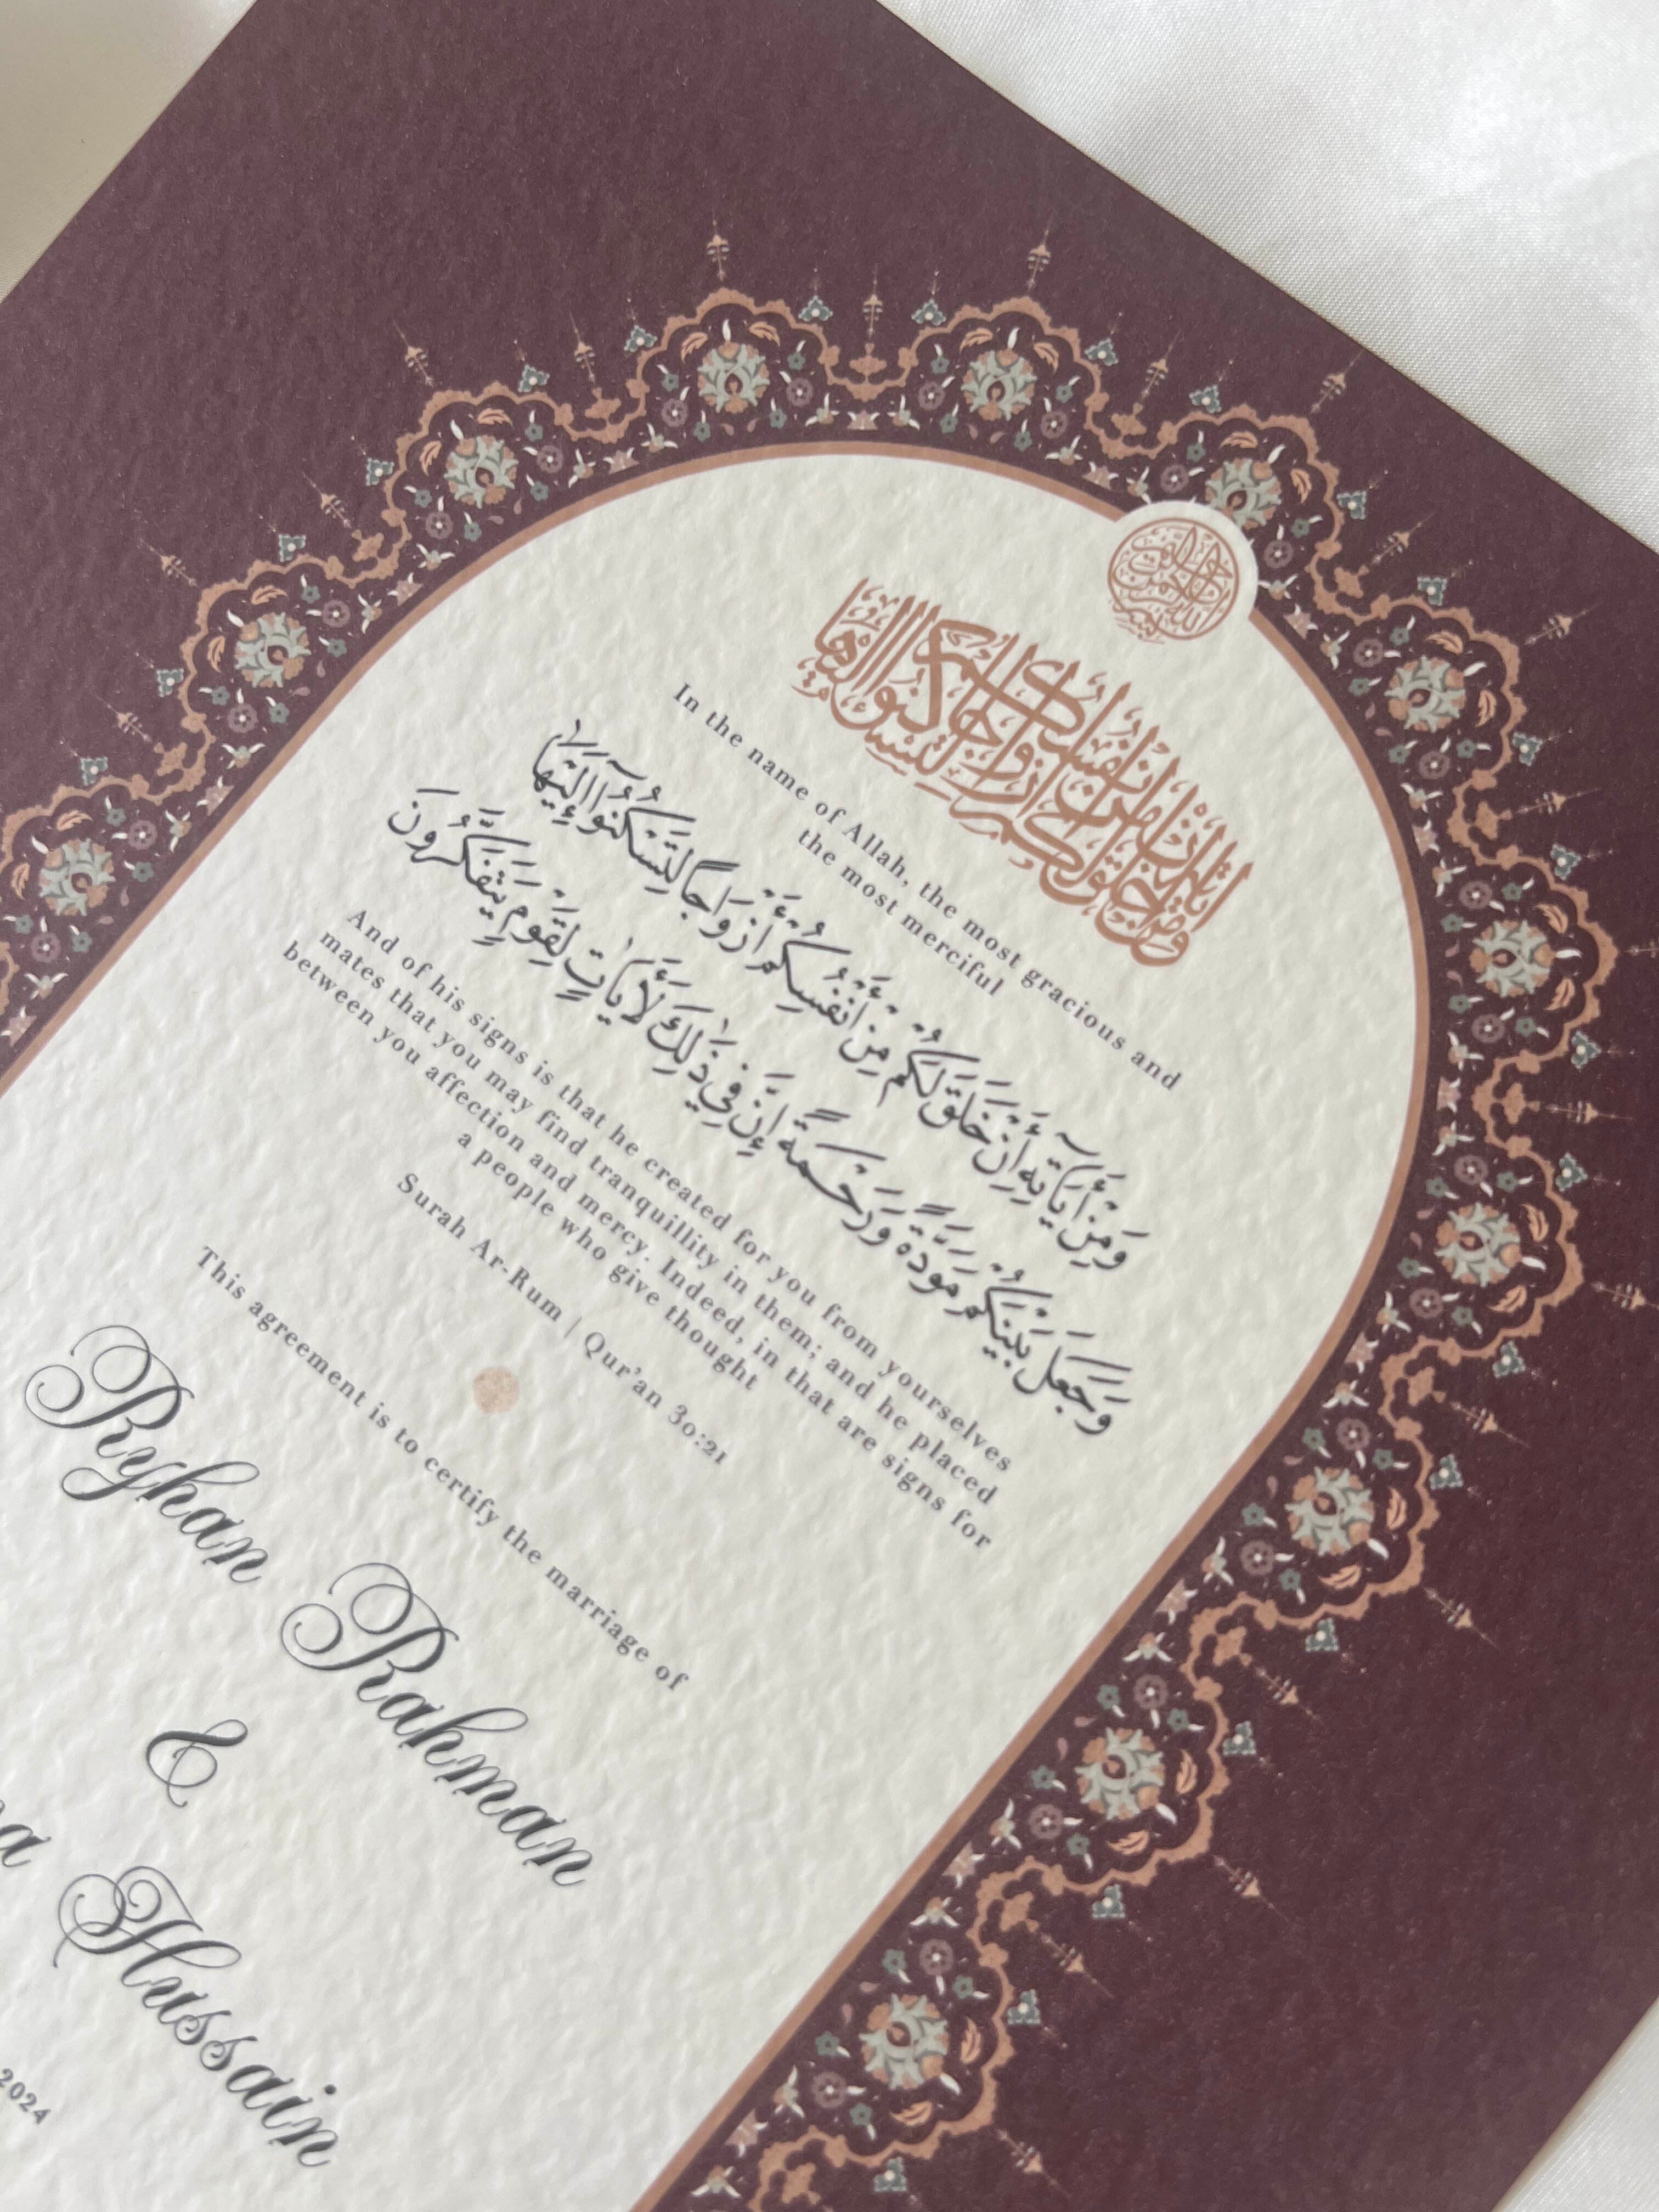 بسم الله الرحمن الرحيم
ومن آياته أن خلق لكم من أنفسكم أزواجا لتسكنوا إليها
In the name of Allah, the most gracious and
the most merciful
وَمِنْ أَيَاتِهِ أَنْ خَلَقَ لَكُمْ مِنْ أَنْفُسِكُمْ أَزْوَاجًا لِتَسْكُنُوا إِلَيْهَا
وَجَعَلَ بَيْنَكُمْ مَوَدَّةً وَرَحْمَةً إِنَّ فِي ذَٰلِكَ لَأَيَاتٍ لِقَوْمٍ يَتَفَكَّرُونَ
And of his signs is that he created for you from yourselves
mates that you may find tranquillity in them; and he placed
between you affection and mercy. Indeed, in that are signs for
a people who give thought
Surah Ar-Rum | Qur'an 30:21
This agreement is to certify the marriage of
Ryhan Rahman
&
Hussain
2024